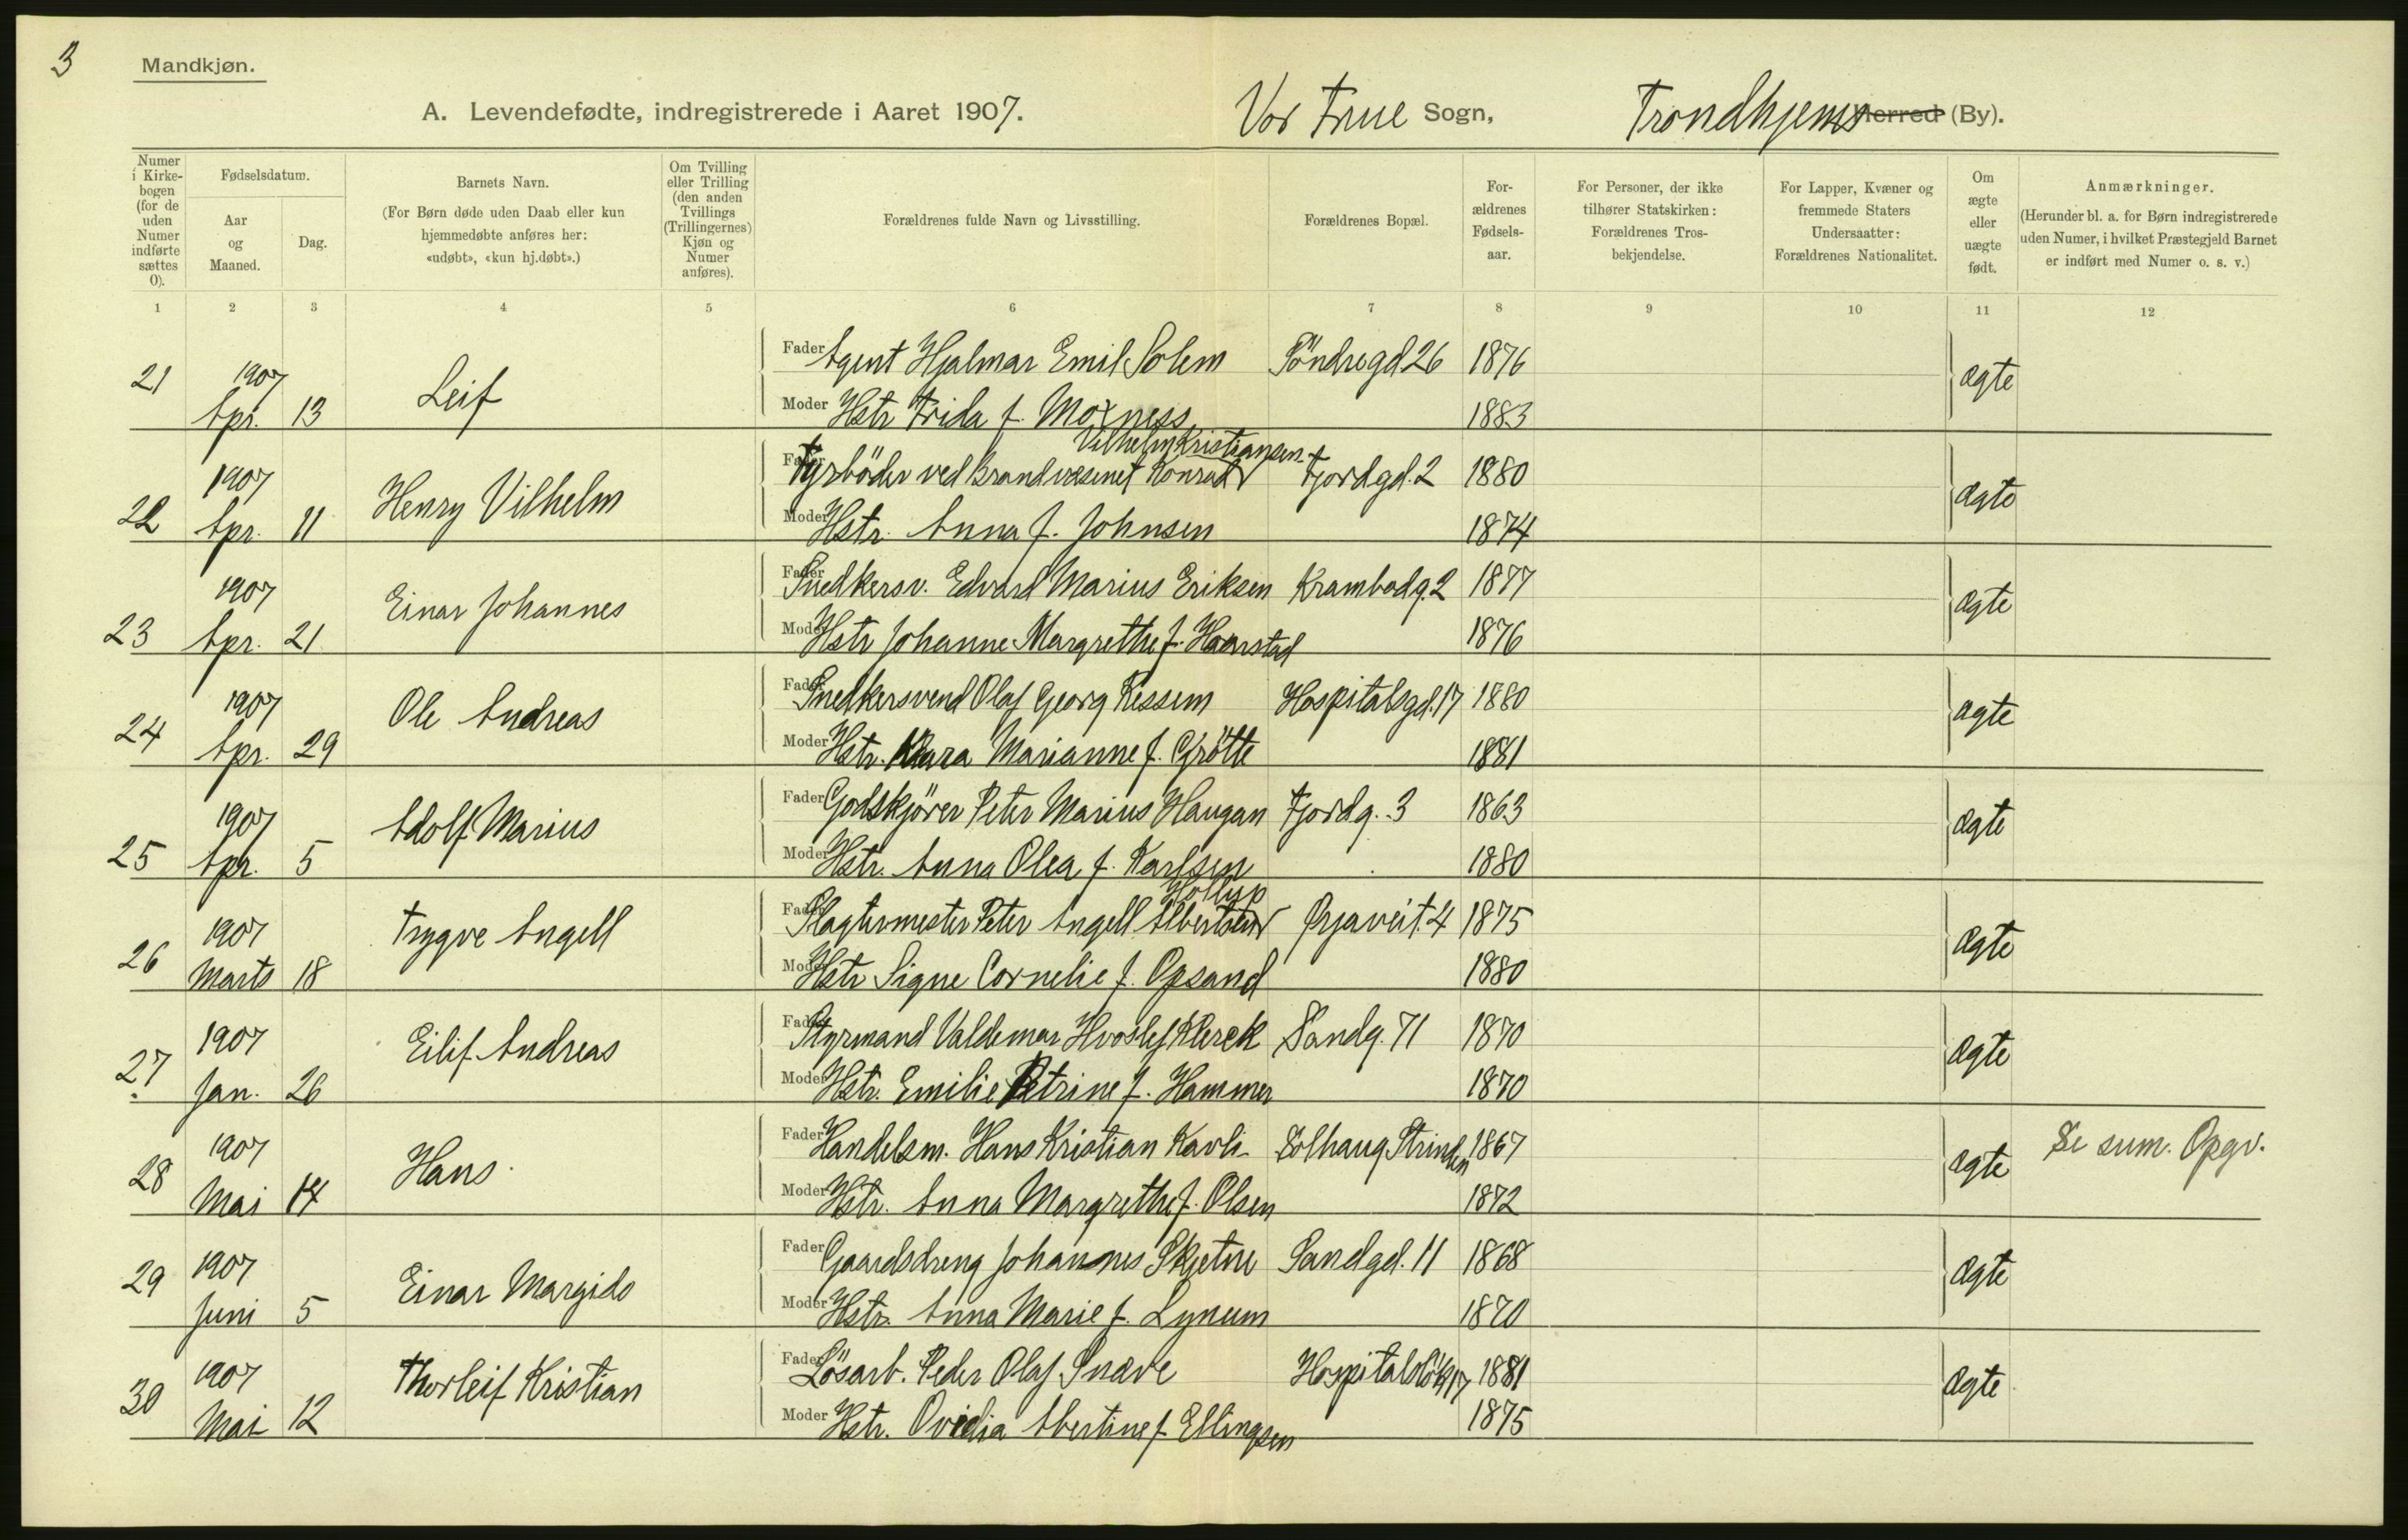 3
Mandkjøn.
A. Levendefødte, indregistrerede i Aaret 1907.
Vor Frue Sogn,
Trondhjems Herred (By).
Numer i Kirke- bogen (for de uden Numer indførte sættes 0).
Fødselsdatum.
Aar og Maaned.
Dag.
Barnets Navn.
(For Børn døde uden Daab eller kun
hjemmedøbte anføres her:
«udøbt», «kun hj.døbt».)
Om Tvilling
eller Trilling
(den anden
Tvillings
(Trillingernes)
Kjøn og
Numer
anføres).
Forældrenes fulde Navn og Livsstilling.
Forældrenes Bopæl.
For-
ældrenes
Fødsels-
aar.
For Personer, der ikke
tilhører Statskirken:
Forældrenes Tros-
bekjendelse.
For Lapper, Kvæner og
fremmede Staters
Undersaatter:
Forældrenes Nationalitet.
Om
ægte
eller
uægte
født.
Anmærkninger.
(Herunder bl. a. for Børn indregistrerede
uden Numer, i hvilket Præstegjeld Barnet
er indført med Numer o. s. v.)
1 2 3 4 5 6 7 8 9 10 11 12
21 1907 Apr. 13 Leif
Fader Agent Hjalmar Emil Solem Söndregd 26 1876 ægte
Moder Hstr Frida f. Moxness 1883
22 1907 Apr. 11 Henry Vilhelm
Vilhelm Kristiansen
Fader Fyrböder ved Brandvæsenet Konrad Fjordgd. 2 1880 ægte
Moder Hstr. Anna f. Johnsen 1874
23 1907 Apr. 21 Einar Johannes
Fader Snedkersv. Edvard Marius Eriksen Krambodg. 2 1877 ægte
Moder Hstr Johanne Margrethe f. Haarstad 1876
24 1907 Apr. 29 Ole Andreas
Fader Snedkersvend Olaf Georg Ressem Hospitalsgd. 17 1880 ægte
Moder Hstr. Klara Marianne f. Grötte 1881
25 1907 Apr. 5 Adolf Marius
Fader Godskjörer Peter Marius Haugan Fjordg. 3 1863 ægte
Moder Hstr. Anna Olea f. Karlsen 1880
26 1907 Marts 18 Trygve Angell
Holtup
Fader Slagtermester Peter Angell Albertsen Ørjaveit. 4 1875 ægte
Moder Hstr Signe Cornelie f. Opsand 1880
27 1907 Jan. 26 Eilif Andreas
Fader Styrmand Valdemar Hvoslef Klerck Sandg. 71 1870 ægte
Moder Hstr. Emilie Petrine f. Hammer 1870
28 1907 Mai 14 Hans
Fader Handelsm. Hans Kristian Kavli Solhaug Strinden 1867 ægte Se sum. Opgv.
Moder Hstr. Anna Margrethe f. Olsen 1872
29 1907 Juni 5 Einar Margido
Fader Gaardsdreng Johannes Skjetne Sandgd. 11 1868 ægte
Moder Hstr. Anna Marie f. Lynum 1870
30 1907 Mai 12 Thorleif Kristian
Fader Lösarb. Peder Olaf Snæve Hospitalslök 17 1881 ægte
Moder Hstr. Ovidia Abertine f. Ellingsen 1875